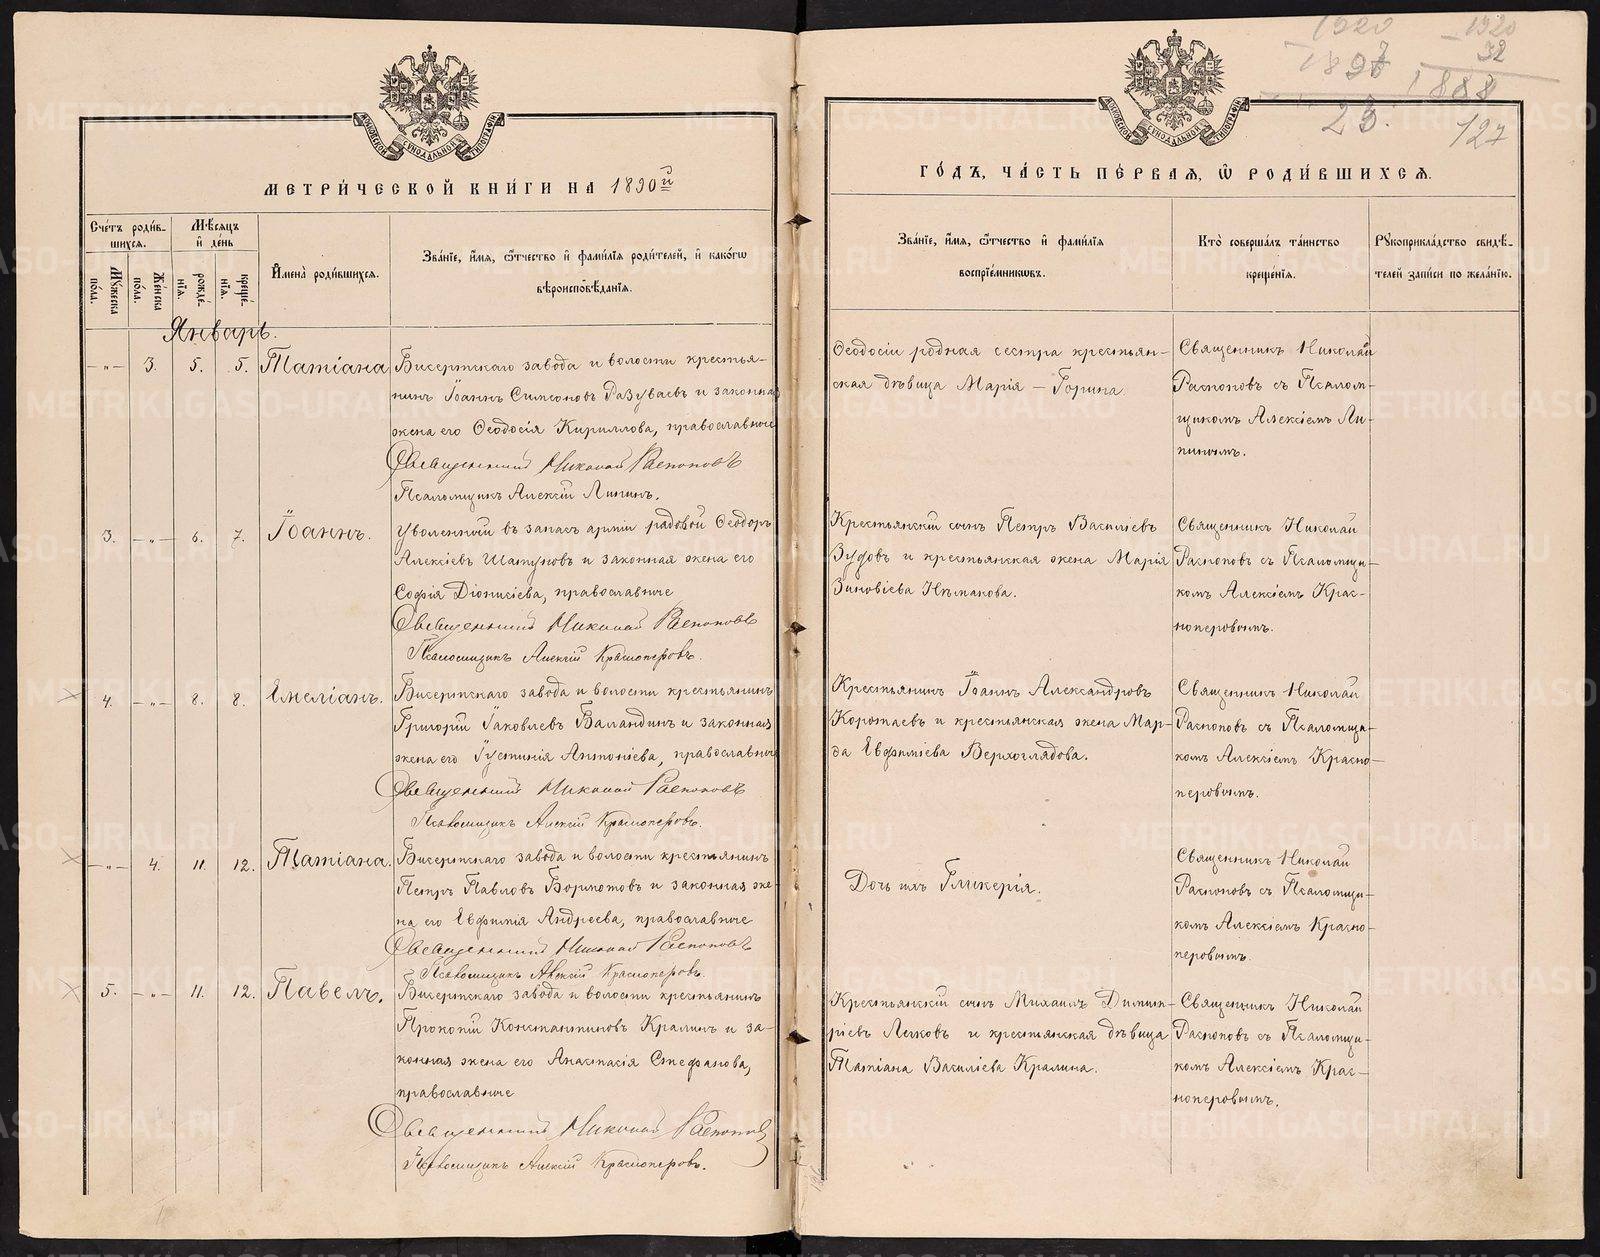 МЕТРИ́ЧЕСКОЙ КНИ́ГИ НА 1890й
Счéтъ роди́в-
шихсѧ.
Мѣ́сѧцъ
и҆ дéнь
Мꙋ́жеска
по́ла.
Жéнска
по́ла.
рождé-
нїѧ.
крещé-
нїѧ.
И҆менà роди́вшихсѧ.
Зва́нїе, и҆́мѧ, ѻ҆́тчество и҆ фами́лїѧ роди́телей, и҆ како́гѡ
вѣроисповѣ́данїѧ.
Январь.
— „ — 3. 5. 5. Татіана
Бисертскаго завода и волости крестья-
нинъ Іоаннъ Симеоновъ Разуваевъ и законная
жена его Ѳеодосія Кириллова, православные
Священникъ Николай Распоповъ
Псаломщикъ Алексій Липинъ.
3. — „ — 6. 7. Іоаннъ.
Уволенный въ запасъ арміи рядовой Ѳеодоръ
Алексіевъ Шатуновъ и законная жена его
Софія Діонисіева, православные
Священникъ Николай Распоповъ
Псаломщикъ Алексій Красноперовъ.
4. — „ — 8. 8. Емеліанъ.
Бисертскаго завода и волости крестьянинъ
Григорій Іаковлевъ Баландинъ и законная
жена его Іустинія Антоніева, православные
Священникъ Николай Распоповъ
Псаломщикъ Алексій Красноперовъ.
— „ — 4. 11. 12. Татіана.
Бисертскаго завода и волости крестьянинъ
Петръ Павловъ Бормотовъ и законная же-
на его Евфимія Андреева, православные
Священникъ Николай Распоповъ
Псаломщикъ Алексій Красноперовъ.
5. — „ — 11. 12. Павелъ.
Бисертскаго завода и волости крестьянинъ
Прокопій Константиновъ Кралинъ и за-
конная жена его Анастасія Стефанова,
православные
Священникъ Николай Распоповъ
Псаломщикъ Алексій Красноперовъ.
1920
1897
23.
1920
32
1888
127
ГО́ДЪ, ЧА́СТЬ ПÉРВАѦ, Ѡ҆ РОДИ́ВШИХСѦ.
Зва́нїе, и҆́мѧ, ѻ҆́тчество и҆ фами́лїѧ
воспрїéмникѡвъ.
Кто̀ соверша́лъ та́инство
крещéнїѧ.
Рꙋкоприкла́дство свидѣ́-
телей за́писи по жела́нїю.
Ѳеодосіи родная сестра крестьян-
ская дѣвица Марія — Горина.
Священникъ Николай
Распоповъ съ Псалом-
щикомъ Алексіемъ Ли-
пинымъ.
Крестьянскій сынъ Петръ Василіевъ
Зудовъ и крестьянская жена Марія
Зиновіева Нѣмакова.
Священникъ Николай
Распоповъ съ Псаломщи-
комъ Алексіемъ Крас-
ноперовымъ.
Крестьянинъ Іоаннъ Александровъ
Коротаевъ и крестьянская жена Мар-
ѳа Евфиміева Верхоглядова.
Священникъ Николай
Распоповъ съ Псаломщи-
комъ Алексіемъ Красно-
перовымъ.
Дочь ихъ Гликерія.
Священникъ Николай
Распоповъ съ Псаломщи-
комъ Алексіемъ Красно-
перовымъ.
Крестьянскій сынъ Михаилъ Димит-
ріевъ Лыковъ и крестьянская дѣвица
Татіана Василіева Кралина.
Священникъ Николай
Распоповъ съ Псаломщи-
комъ Алексіемъ Крас-
ноперовымъ.
METRIKI.GASO-URAL.RU